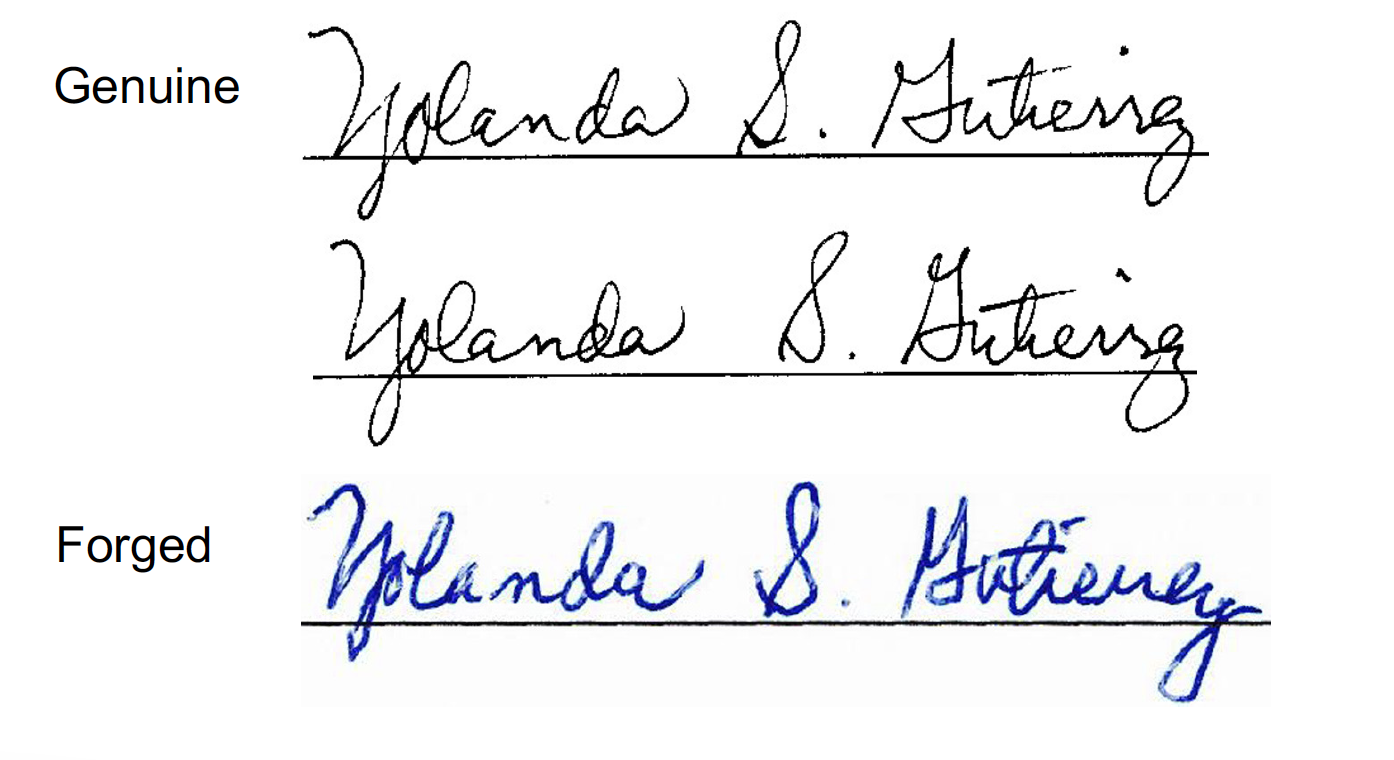 Genuine
Yolanda S. Gutierrez
Yolanda S. Gutierrez
Forged
Yolanda S. Gutierrez